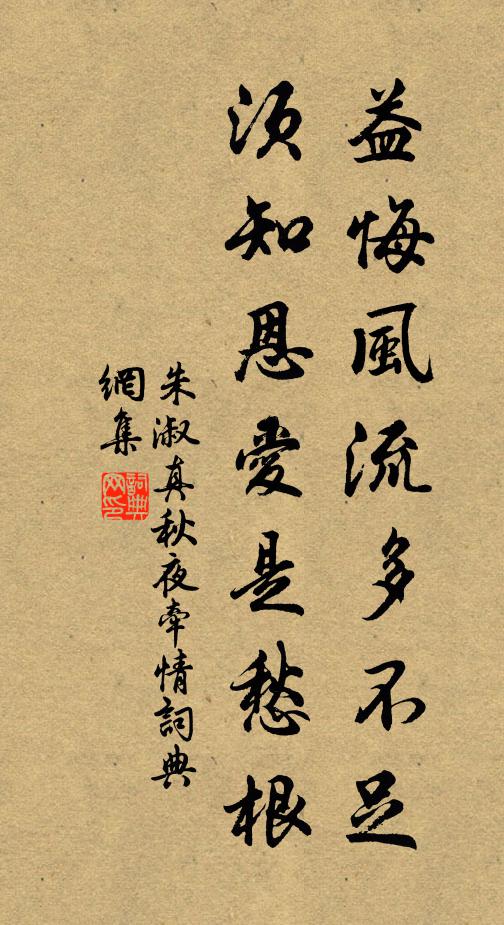 益悔風流多不足
須知恩愛是愁根
朱淑真秋夜牽情詞典
網集
詞典
网印